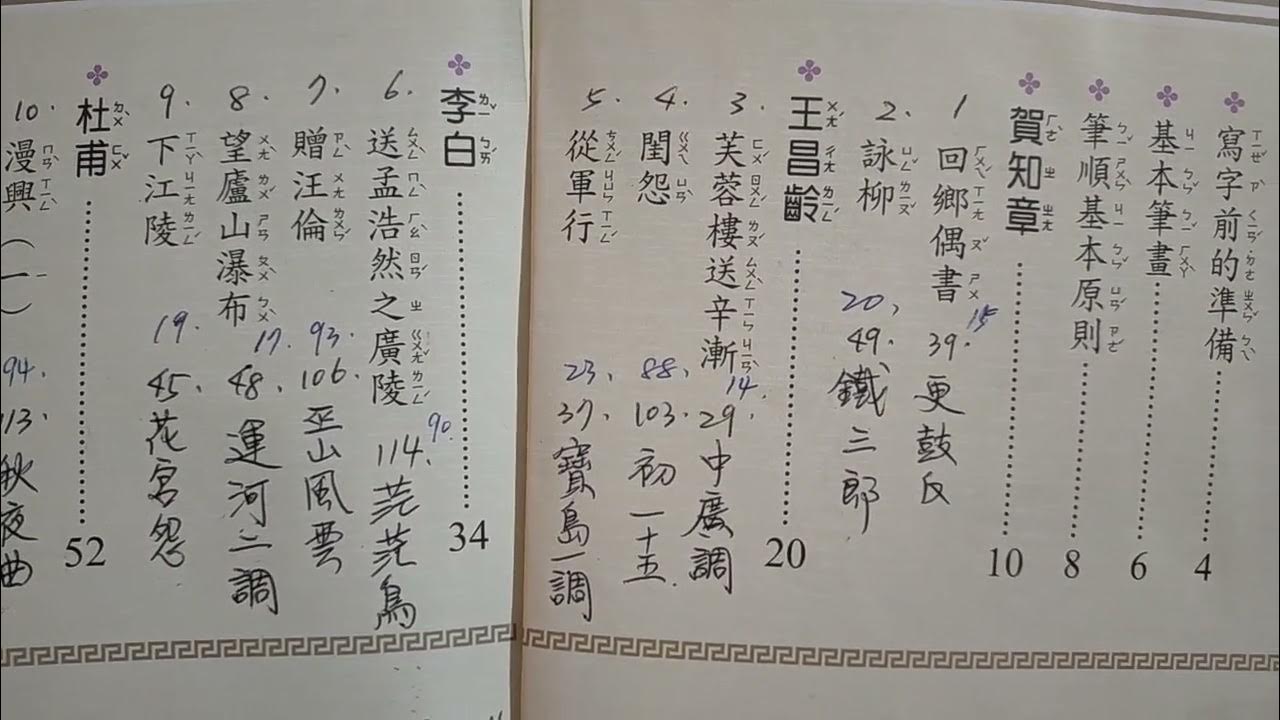 寫字前的準備 4
基本筆畫 6
筆順基本原則 8
賀知章 10
1 回鄉偶書 15. 39. 更鼓反
2. 詠柳 20, 49. 鐵三郎
王昌齡 20
3. 芙蓉樓送辛漸 14. 29. 中廣調
4. 閨怨 88, 103. 初一十五.
5. 從軍行 23, 37. 寶島一調
李白 34
6. 送孟浩然之廣陵 90. 114. 茫茫鳥
7. 贈汪倫 93. 106. 巫山風雲
8. 望廬山瀑布 17. 48. 運河二調
9. 下江陵 19. 45. 花宮怨
杜甫 52
10. 漫興（一） 94. 113. 秋夜曲